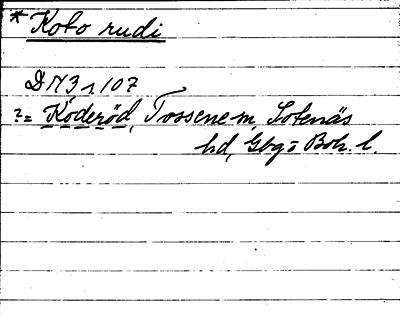 * Koto rudi
DN 3, 1107
?= Köderöd, Tossene sn, Sotenäs
hd, Gbg o Boh. l.